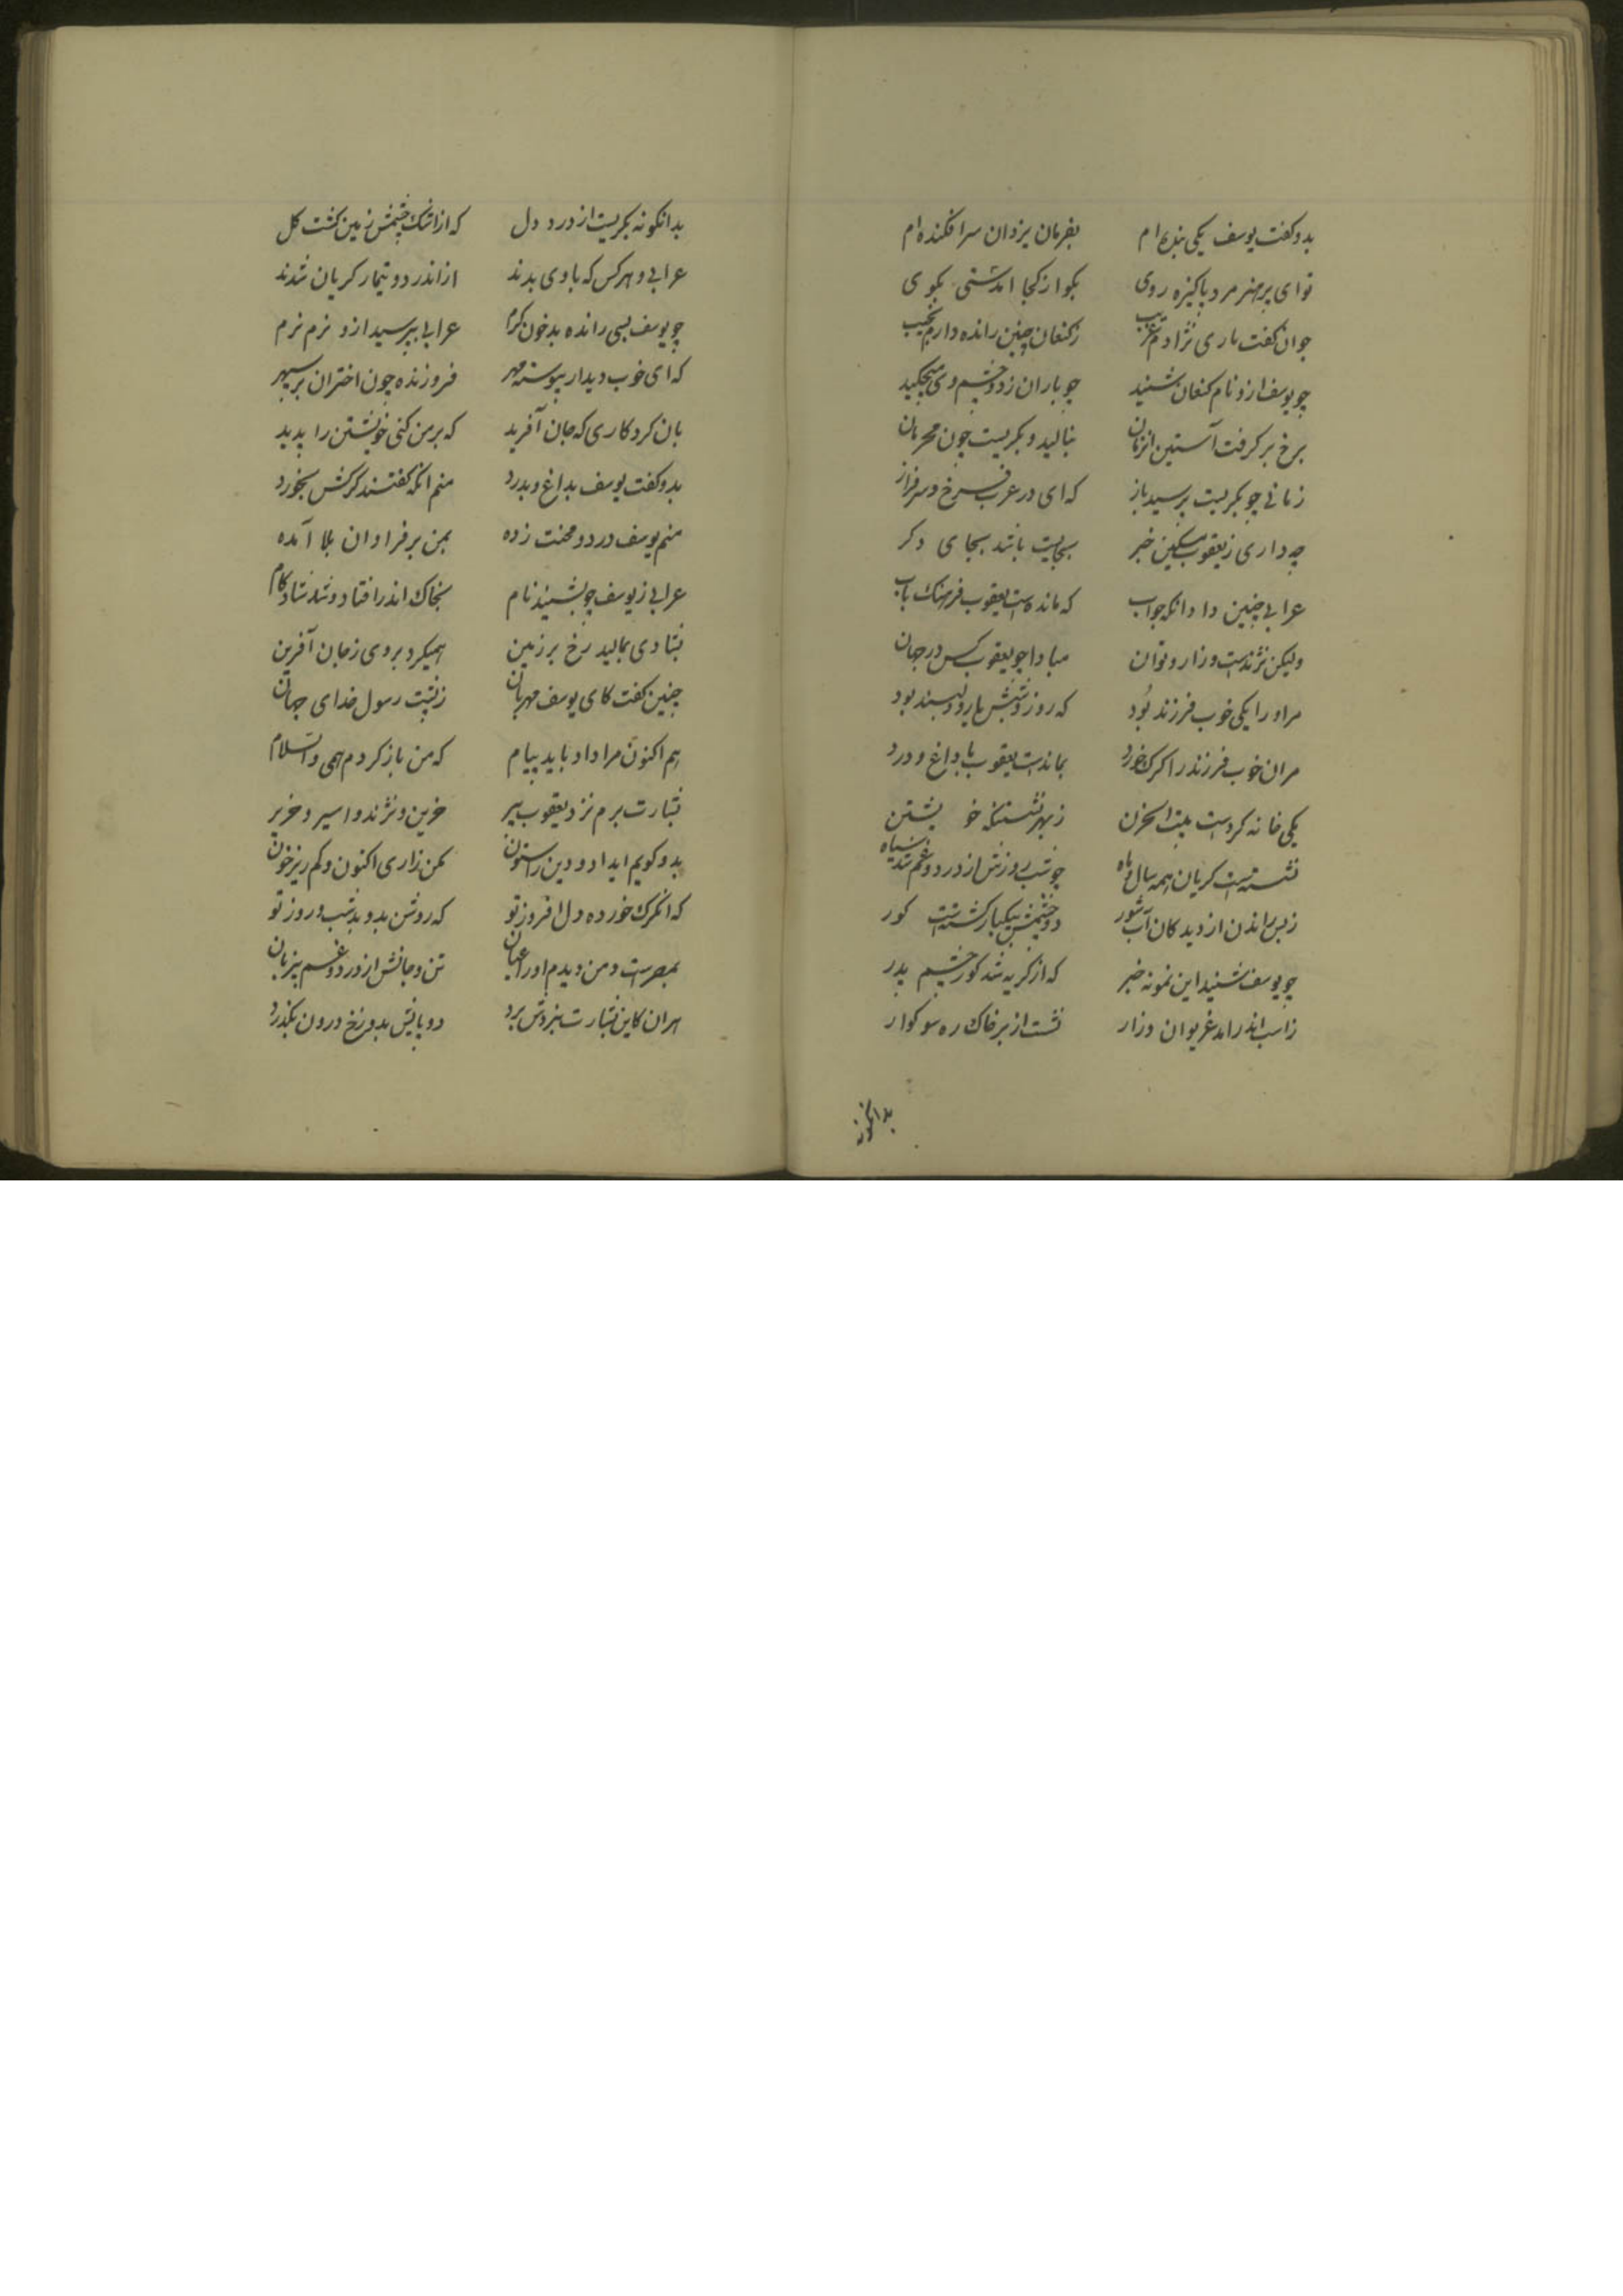 بدو گفت یوسف یکی بنده‌ام بفرمان یزدان سرافکنده‌ام
توای پرهنر مرد پاکیزه روی بکو از کجا آمدستی بکوی
جوان گفت باری نژادم عرب ز کنعان چنین رانده دارم نجیب
چو یوسف ازو نام کنعان شنید چو باران ز دو چشم وی میچکید
برخ بر کرفت آستین انزمان بنالید و بکریست چون
زمانی چو بکریست پرسید باز که ای در عرب فرخ و سرفراز
چه داری ز یعقوب مسکین خبر بجایست باشد بجای دکر
عرابی چنین داد انکه جواب که مانده است یعقوب فرهنک یاب
ولیکن نژندست و زار و نوان مبادا چو یعقوب کس در جهان
مر او را یکی خوب فرزند بود که روز و شبش یار و دلبند بود
مر ان خوب فرزند را کرک خورد بماندست یعقوب با داغ و درد
یکی خانه کردست بیت الحزن ز بهر نشستنکه خویشتن
نشستست کریان همه سال و ماه چو شب روزش از درد و غم شد سیاه
ز بس راندن از دیدکان آب شور دو چشمش بیکبار کشتست کور
چو یوسف شنید این نمونه خبر که از کریه شد کور چشم پدر
ز اسب اندر امد غریوان و زار نشست از بر خاک ره سوکوار
بدانکونه
بدانکونه بکریست از درد دل که از اشک چشمش زمین کشت کل
عرابی و هر کس که با وی بدند از اندر دو تیمار کریان شدند
چو یوسف بسی رانده بد خون کرم عرابی بپرسید ازو نرم نرم
که ای خوب دیدار پیوسته مهر فروزنده چون اختران بر سپهر
بان کردکاری که جان آفرید که بر من کنی خویشتن را پدید
بدو کفت یوسف بداغ و بدرد منم انکه کفتند کرکش بخورد
منم یوسف درد و محنت زده بمن بر فراوان بلا آمده
عرابی ز یوسف چو بشنید نام بخاک اندر افتاد و شد شادکام
بشادی بمالید رخ بر زمین همیکرد بر وی ز جان آفرین
چنین کفت کای یوسف مهربان ز پشت رسول خدای جهان
هم اکنون مرا داد باید پیام که من باز کردم همی والسلام
بشارت برم نزد یعقوب پیر حزین و نژند و اسیر و
بدو کویم ایداد و دین را ستون مکن زاری اکنون و کم ریز خون
که انکرک خورده دل افروز تو که روشن بدو بد شب و روز تو
بمصرست و من دیدم او را عیان تن و جانش از درد و غم
هران کاین بشارت بنزدش برد دو پایش بدوزخ درون نکذرد